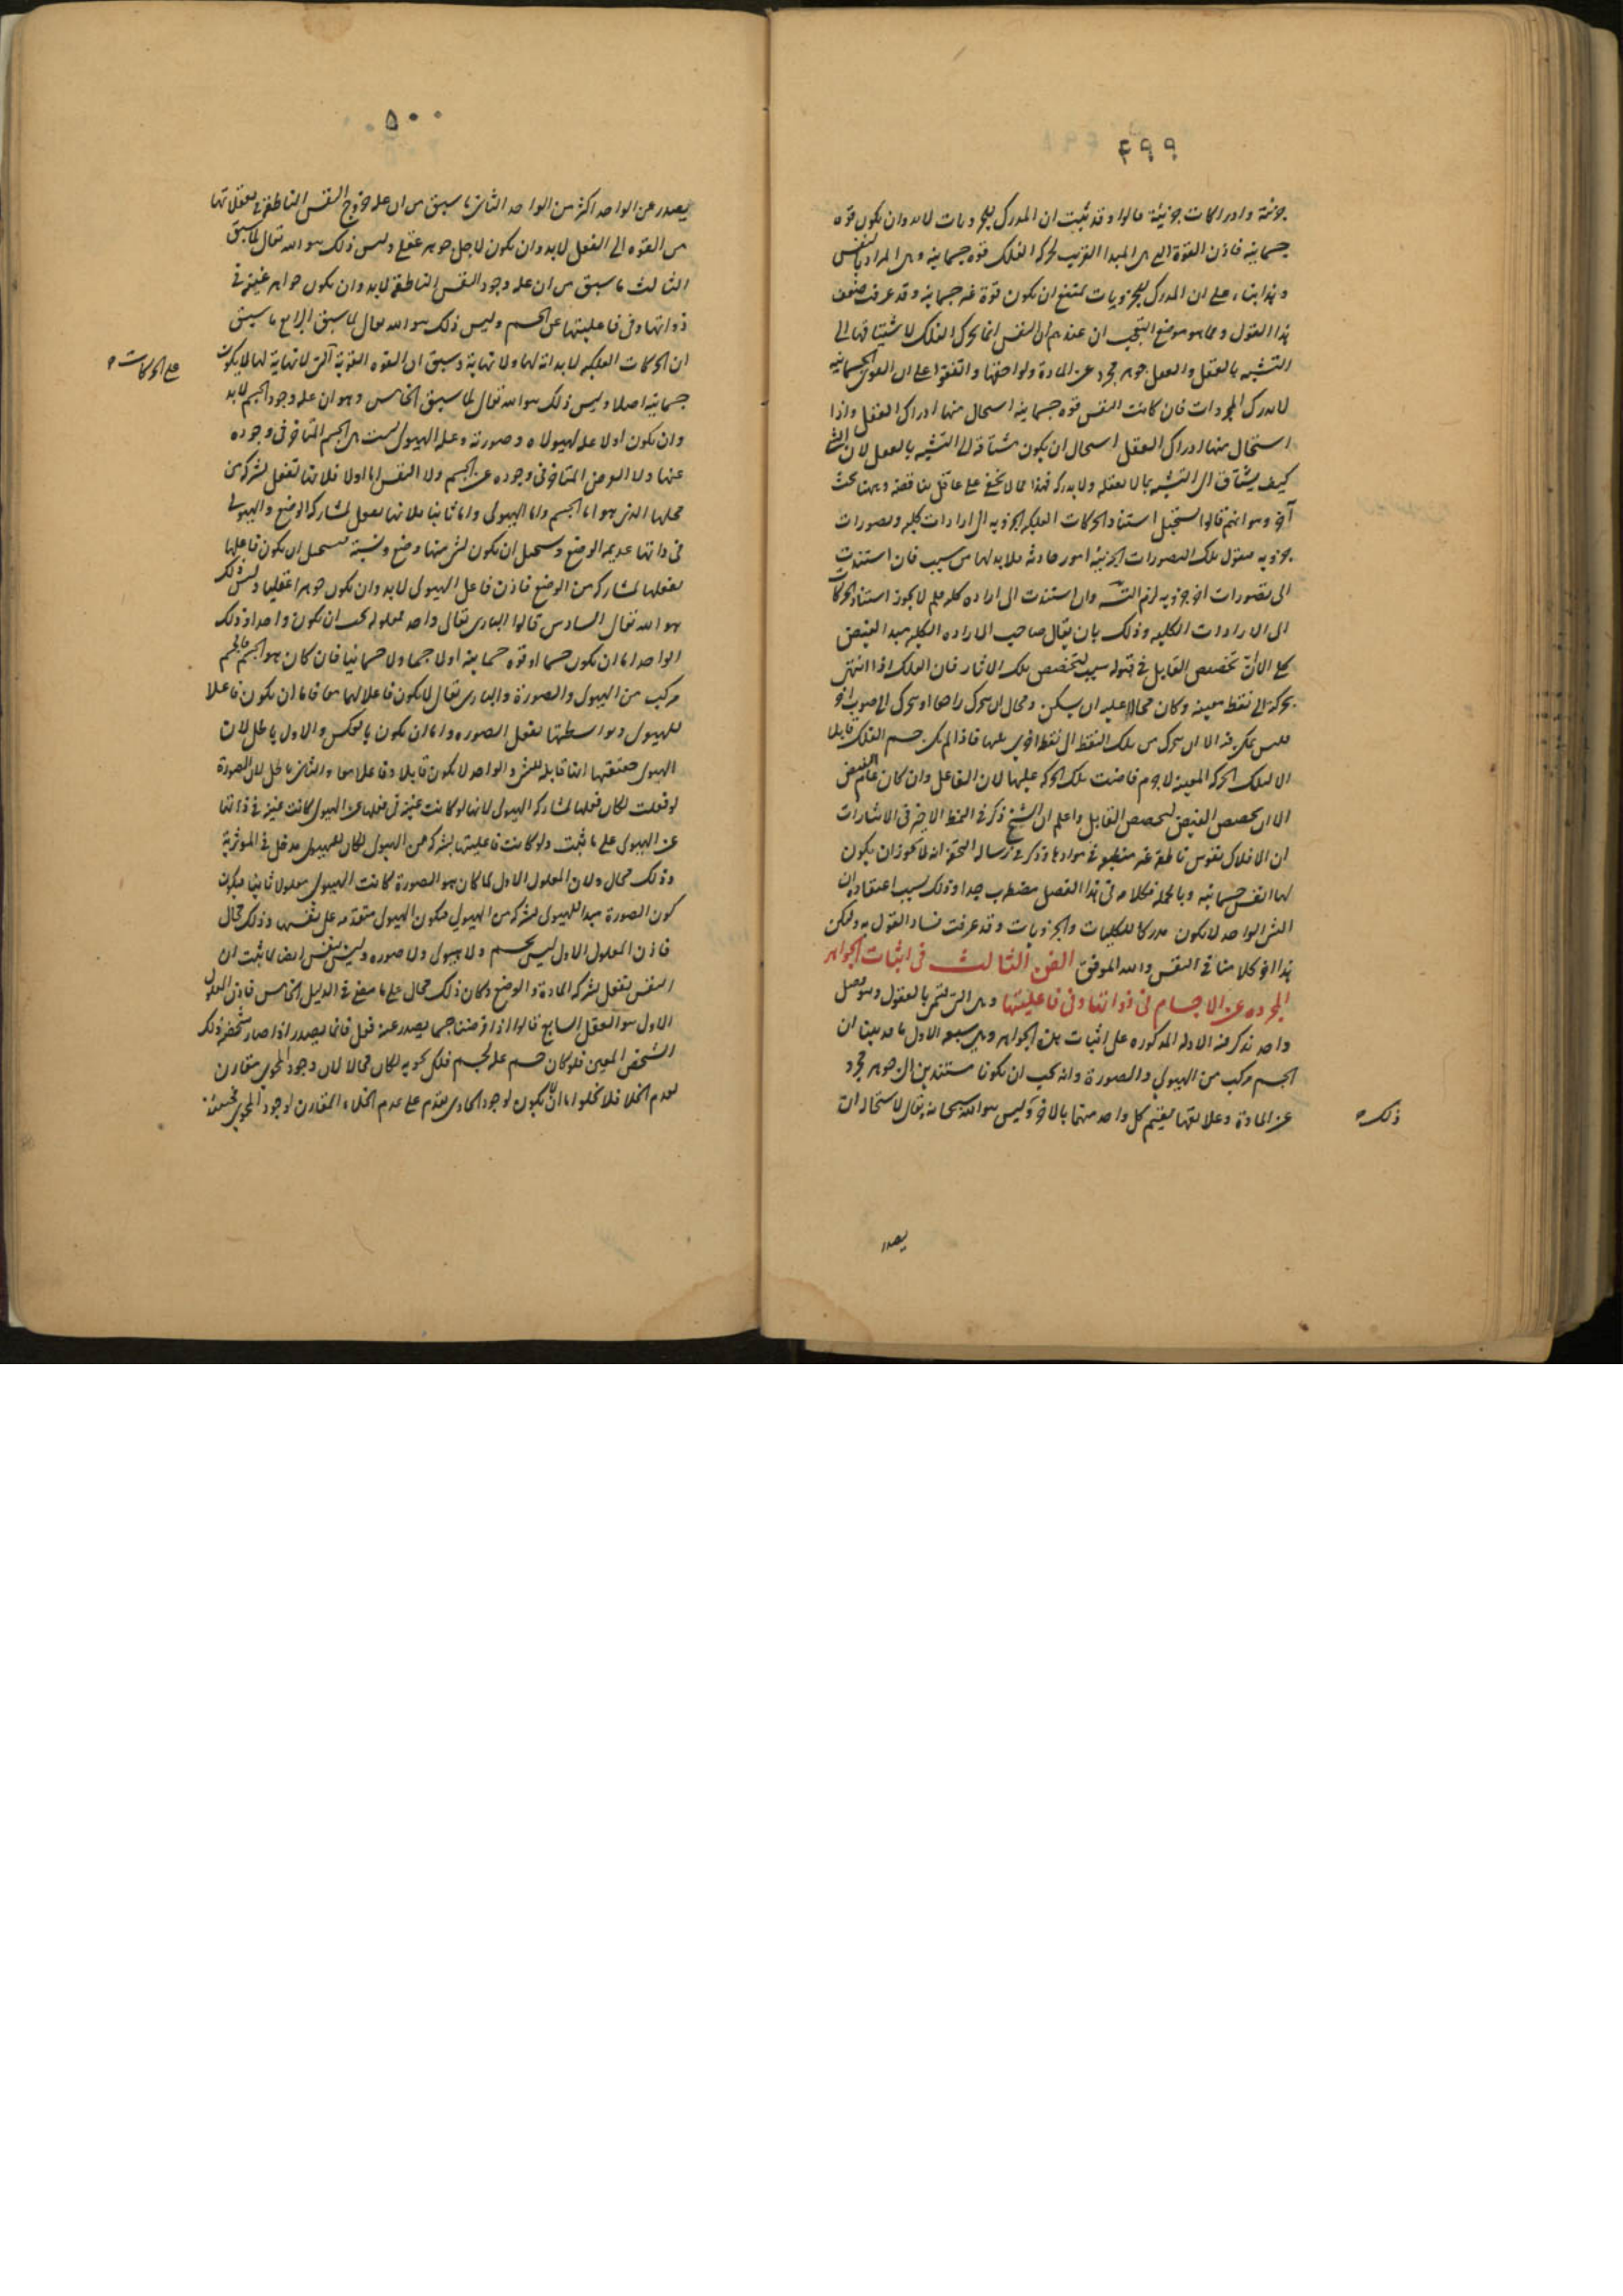 ٤٩٩
جزئية وادراكات جزئية قالوا وقد ثبت ان المدرك للجزويات لابد وان يكون قوة
جسمانية فاذن القوة التى هى المبدا القريب لحركة الفلك قوة جسمانية وهى المراد بالنفس
وهذا بناء على ان المدرك للجزويات يمتنع ان يكون قوة غير جسمانية وقد عرفت ضعف
هذا القول ومما هو موضع التعجب ان عندهم ان النفس انما تحرك الفلك لاشتياقها الى
التشبه بالعقل والعقل جوهر مجرد عن المادة ولواحقها واتفقوا على ان القوى الجسمانية
لا تدرك المجردات فان كانت النفس قوة جسمانية استحال منها ادراك العقل واذا
استحال منها ادراك العقل استحال ان يكون مشتاقة الى التشبه بالعقل لان الشئ
كيف يشتاق الى التشبه بما لا يعقله ولا يدركه فهذا مما لا يخفى على عاقل تناقضه وههنا بحث
آخر وهو انهم قالوا يستحيل استناد الحركات الفلكية الجزوية الى ارادات كلية وتصورات
جزوية فنقول تلك التصورات الجزئية امور حادثة فلا بد لها من سبب فان استندت
الى تصورات اخر جزوية لزم التسـ وان استندت الى ارادة كلية فلم لا يجوز استناد الحركات
الى الارادات الكلية وذلك بان يقال صاحب الارادة الكلية مبدا الفيض
كلى الا ان تخصص القابل فى قبوله سبب لتخصص تلك الاثار فان الفلك اذا انتهى
بحركة الى نقطة معينة وكان محالا عليه ان يسكن ومحال ان يتحرك راجعا او يتحرك الى صوب اخر
فليس يمكن فيه الا ان يتحرك من تلك النقطة الى نقطة اخرى تليها فاذا لم يكن جسم الفلك قابلا
الا لتلك الحركة المعينة لا جرم فاضت تلك الحركة عليها لان الفاعل وان كان عام الفيض
الا ان تخصص الفيض لتخصص القابل واعلم ان الشيخ ذكر فى النمط الاخير فى الاشارات
ان الافلاك نفوس ناطقة غير منطبعة فى موادها وذكر فى رسالة التحفة انه لا يجوز ان يكون
لها انفس جسمانية وبالجملة فكلامه فى هذا الفصل مضطرب جدا وذلك بسبب اعتقاده ان
الشئ الواحد لا يكون مدركا للكليات والجزويات وقد عرفت فساد القول به وليكن
هذا اخر كلامنا فى النفس والله الموفق الفن الثالث فى اثبات الجواهر
المجرده عن الاجسام فى ذواتها وفى فاعليتها وهى التى تسمى بالعقول وهو فصل
واحد نذكر فيه الادلة المذكورة على اثبات هذه الجواهر وهى سبعة الاول ما قد بينا ان
الجسم مركب من الهيولى والصورة وانه يجب ان يكونا مستندين الى جوهر مجرد
عن المادة وعلائقها يقيم كل واحد منهما بالاخر وليس هو الله سبحانه وتعالى لاستحالة ان
ذلك
يصدر
٥٠٠
يصدر عن الواحد اكثر من الواحد الثانى ما سبق من ان علة خروج النفس الناطقة فى تعقلاتها
من القوة الى الفعل لابد وان يكون لاجل جوهر عقلى وليس ذلك هو الله تعالى لما سبق
الثالث ما سبق من ان علة وجود النفس الناطقة لابد وان يكون جواهر غنية فى
ذواتها وفى فاعليتها عن الجسم وليس ذلك هو الله تعالى لما سبق الرابع ما سبق
ان الحركات الفلكية لا بداية لها ولا نهاية وسبق ان القوة القوية التى لا نهاية لها لا يكون
على الحركات
جسمانية اصلا وليس ذلك هو الله تعالى لما سبق الخامس وهو ان علة وجود الجسم لابد
وان يكون اولا علة لهيولاه وصورته وعلة الهيولى ليست هى الجسم المتاخر فى وجوده
عنها ولا العرض المتاخر فى وجوده عن الجسم ولا النفس اما اولا فلانها تفعل بشركة من
محلها الذى هو اما الجسم واما الهيولى واما ثانيا فلانها تفعل بمشاركة الوضع والهيولى
فى ذاتها عديمة الوضع ويستحيل ان يكون لشئ منها وضع ونسبة فيستحيل ان يكون فاعلها
يفعلها بمشاركة من الوضع فاذن فاعل الهيولى لابد وان يكون جوهرا عقليا وليس ذلك
هو الله تعالى السادس قالوا البارى تعالى واحد فمعلوله يجب ان يكون واحدا وذلك
الواحد اما ان يكون جسما او قوة جسمانية اولا جسما ولا جسمانيا فان كان هو الجسم فالجسم
مركب من الهيولى والصورة والبارى تعالى لا يكون فاعلا لهما معا فاما ان يكون فاعلا
للهيولى وبواسطتها تفعل الصورة واما ان يكون بالعكس والاول باطل لان
الهيولى حقيقتها انها قابلة للشئ والواحد لا يكون قابلا وفاعلا معا والثانى باطل لان الصورة
لو فعلت لكان فعلها بمشاركة الهيولى لانها لو كانت غنية فى فعلها عن الهيولى كانت غنية فى ذاتها
عن الهيولى على ما ثبت ولو كانت فاعليتها بشركة من الهيولى لكان للهيولى مدخل فى المؤثرية
وذلك محال ولان المعلول الاول لما كان هو الصورة كانت الهيولى معلولا ثانيا فيكون
كون الصورة مبدا للهيولى بشركة من الهيولى فيكون الهيولى متقدمة على نفسها وذلك محال
فاذن المعلول الاول ليس بجسم ولا هيولى ولا صورة وليس بنفس ايضا لما ثبت ان
النفس تفعل بشركة المادة والوضع وكان ذلك محال على ما مضى فى الدليل الخامس فاذن المعلول
الاول هو العقل السابع قالوا اذا فرضنا جسما يصدر عنه فعل فانما يصدر اذا صار شخصه ذلك
الشخص المعين فلو كان جسم علة لجسم فلكى يحويه لكان محالا لان وجود المحوى مقارن
لعدم الخلا فلا يخلوا اما ان يكون لوجود الحاوى تقدم على عدم الخلاء المقارن لوجود المحوى